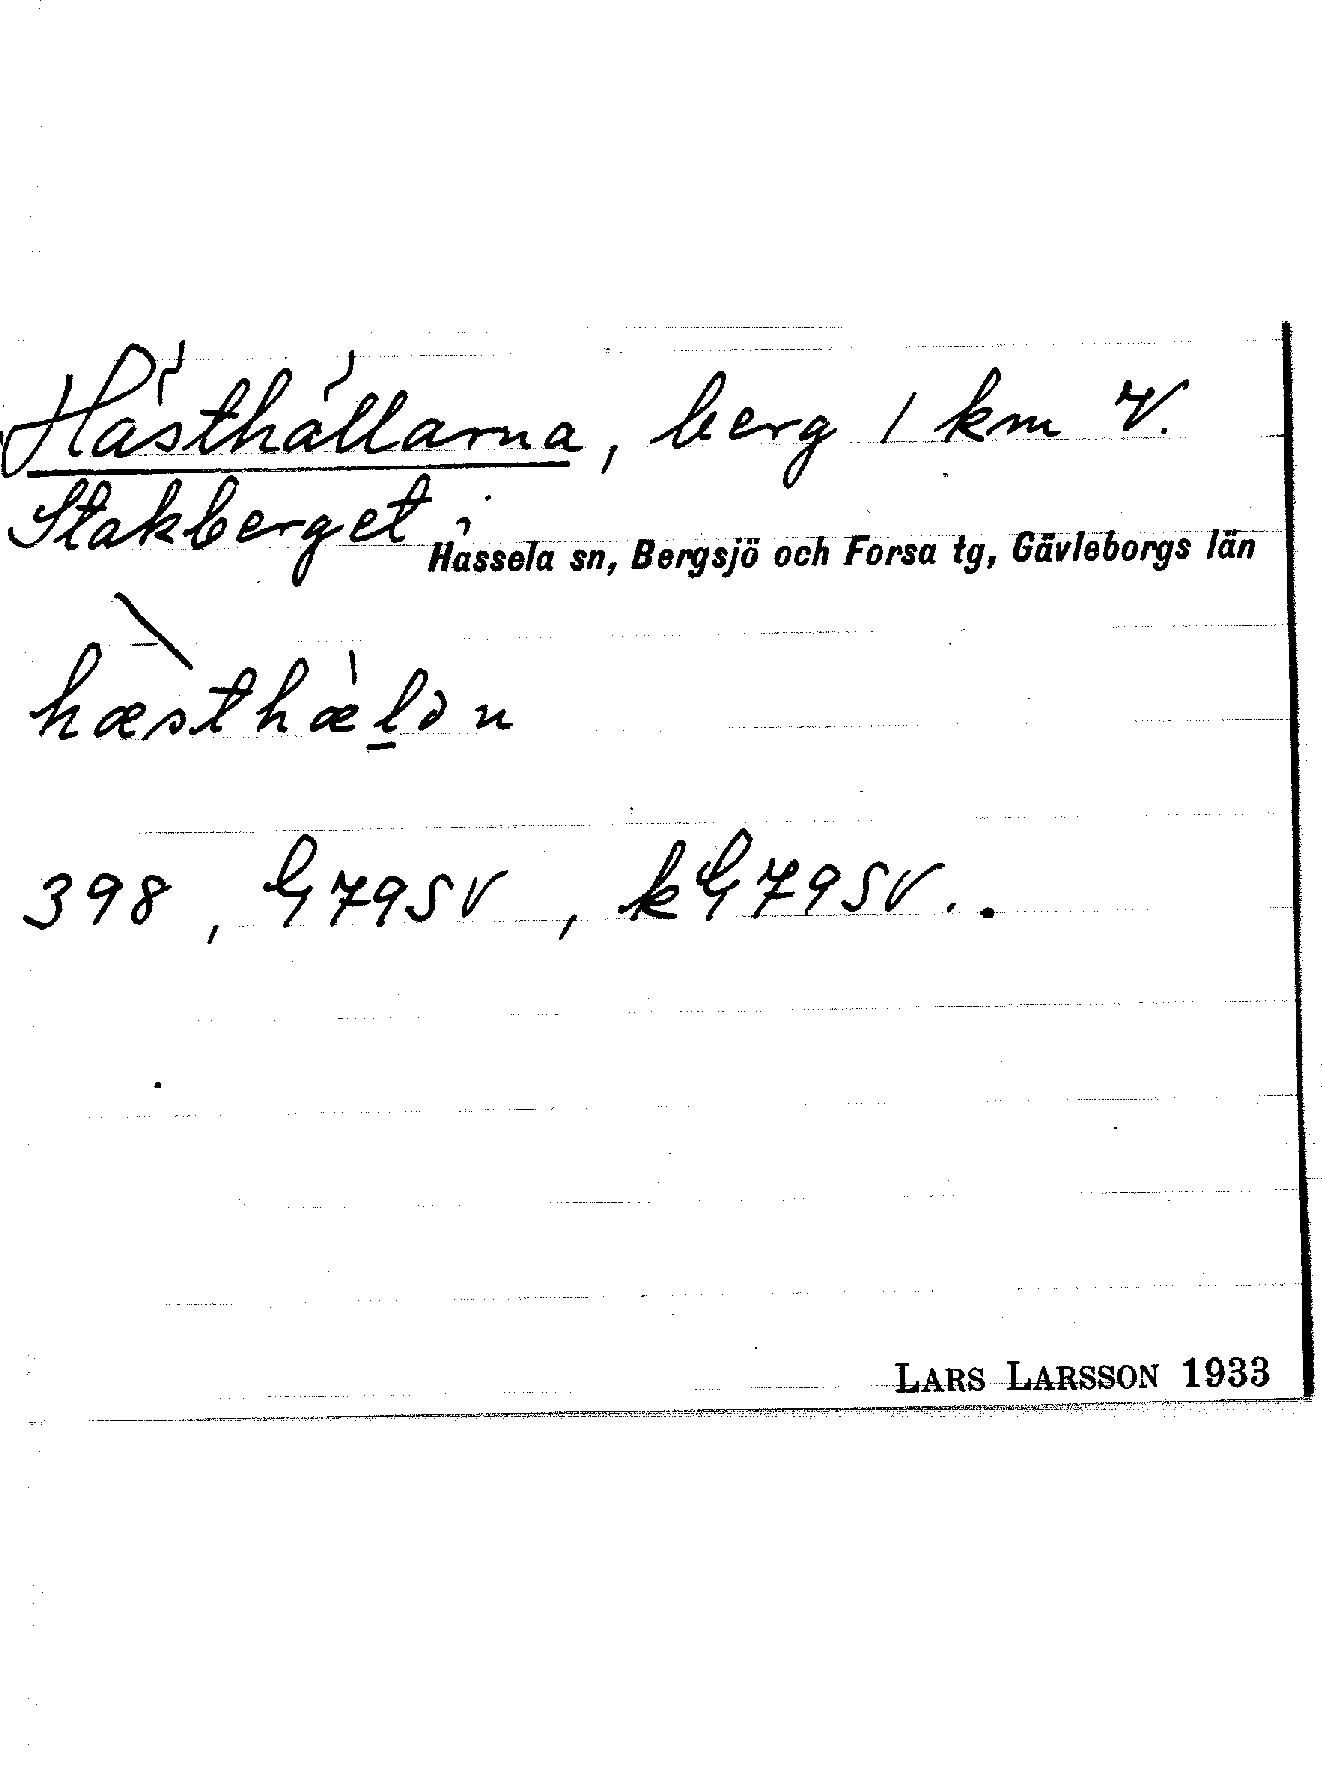 Hästhällarna, berg 1 km V.
Stakberget i
Hassela sn, Bergsjö och Forsa tg, Gävleborgs län
hæsthæ̀l̠ən
398, G79SV, kG79SV..
LARS LARSSON 1933